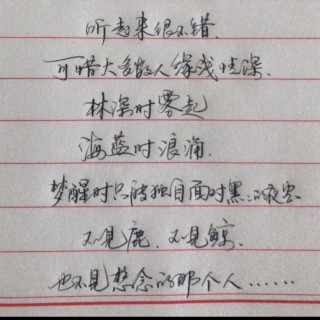 听起来很不错.
可惜大多数人缘浅情深.
林深时雾起
海蓝时浪涌.
梦醒时只能独自面对黑的夜空
不见鹿.不见鲸.
也不见想念的那个人……